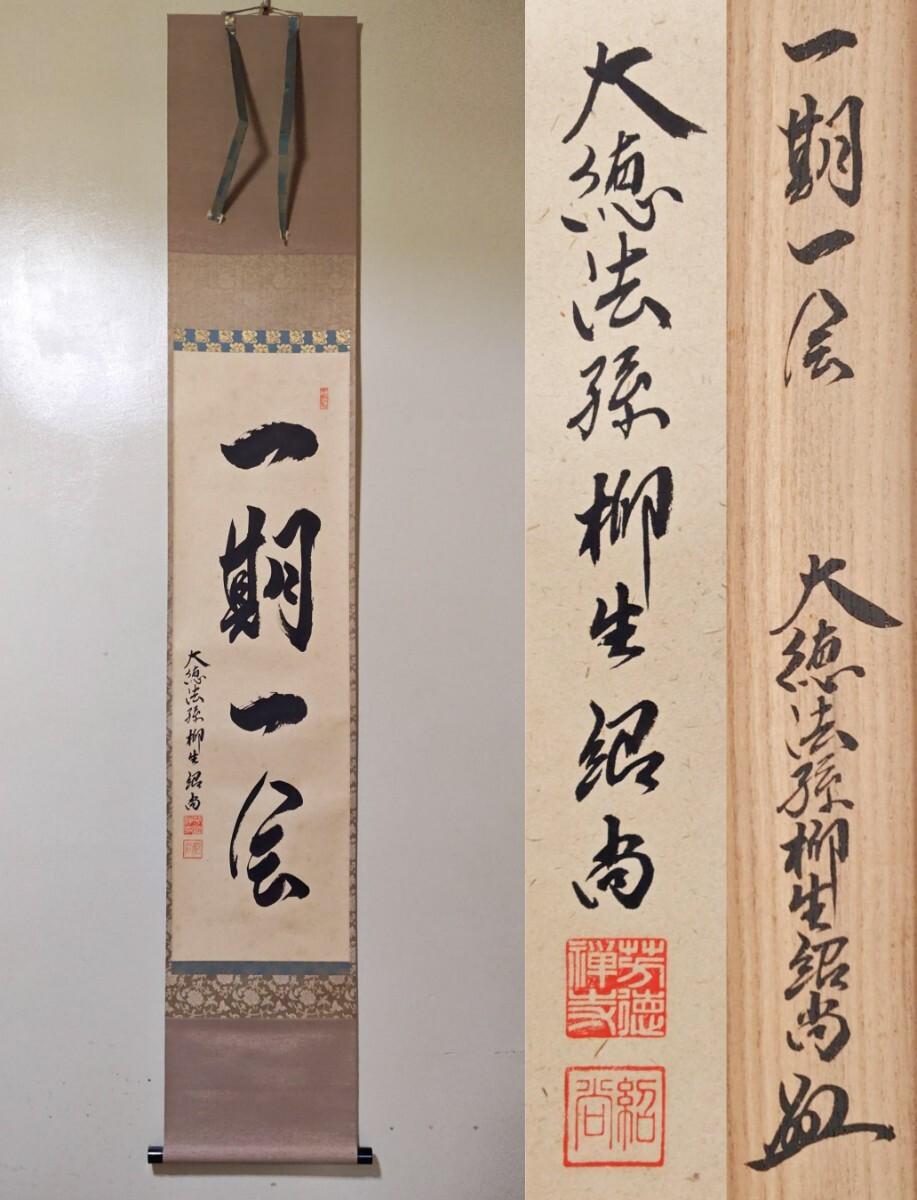 一期一会
大徳法孫柳生紹尚
大徳法孫柳生紹尚
芳徳禅寺
紹尚
一期一会
大徳法孫柳生紹尚